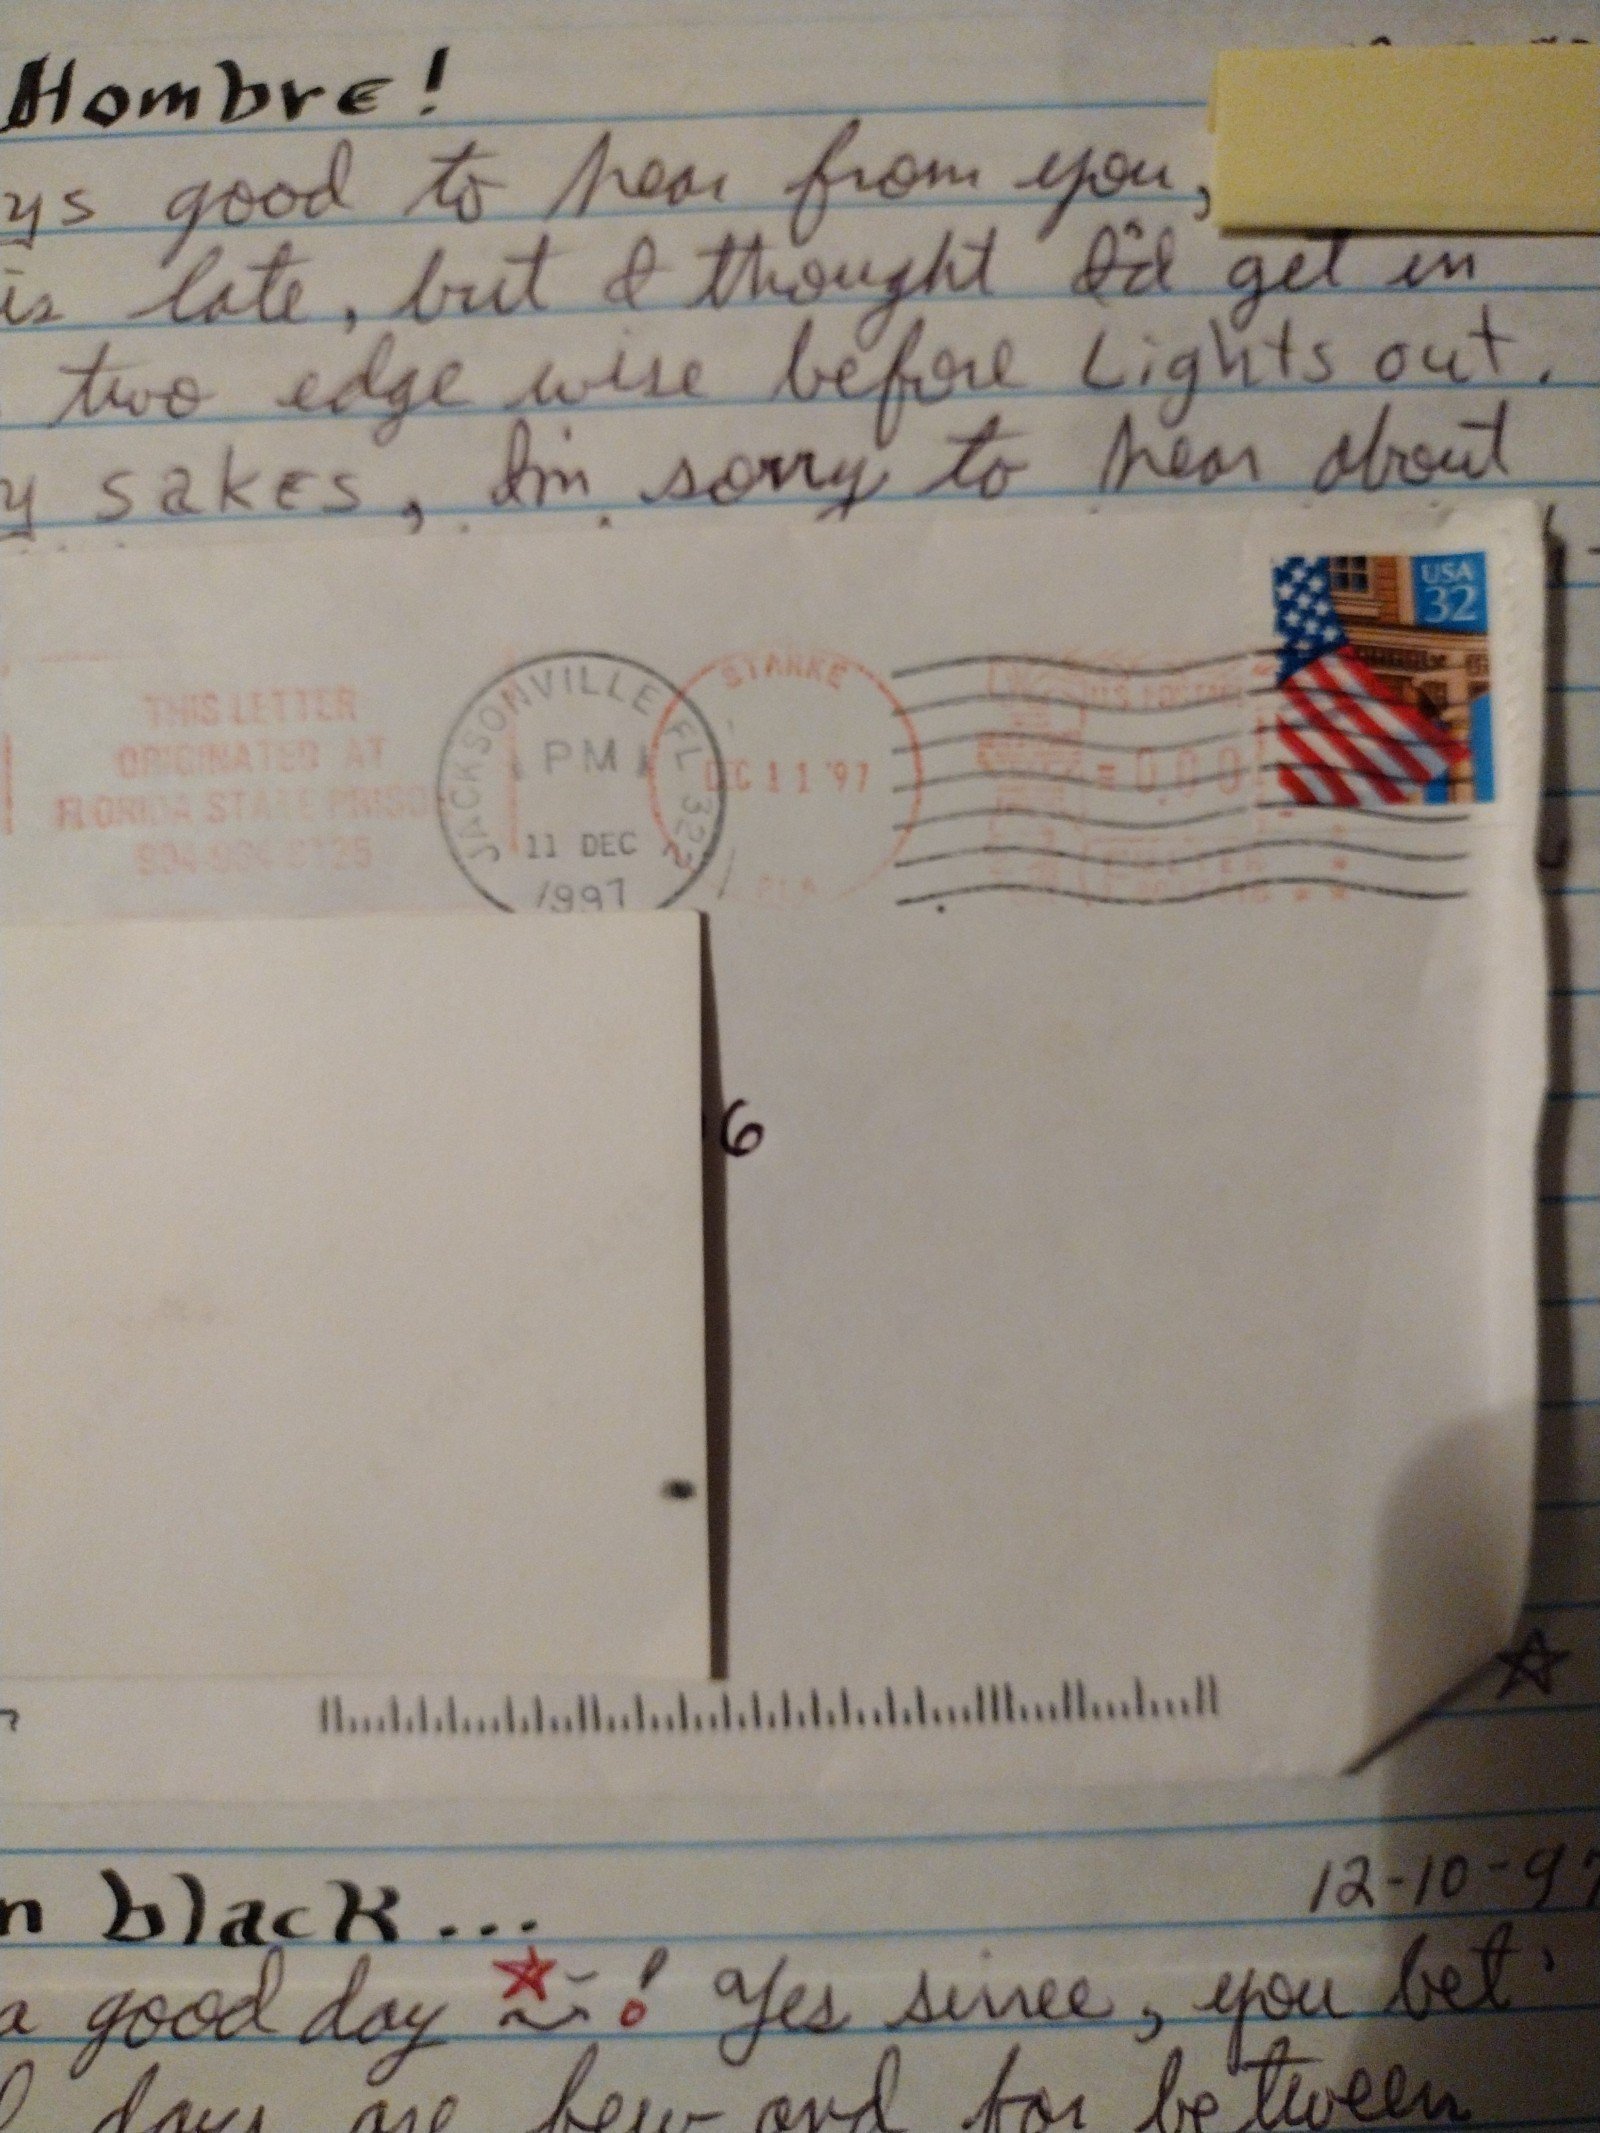 Hombre!
ys good to hear from you,
is late, but I thought I'd get in
two edge wise before Lights out.
y sakes, I'm sorry to hear about
USA
32
THIS LETTER
ORIGINATED AT
FLORIDA STATE PRISO
JACKSONVILLE FL 322
PM
11 DEC
1997
STARKE
DEC 11 '97
FLA
U.S. POSTAGE
= 0.00
6
n black...
12-10-97
a good day ! Yes siree, you bet
days are few and far between